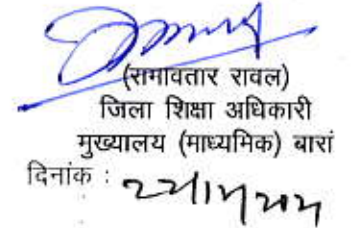 (रामावतार रावल)
जिला शिक्षा अधिकारी
मुख्यालय (माध्यमिक) बारां
दिनांक :